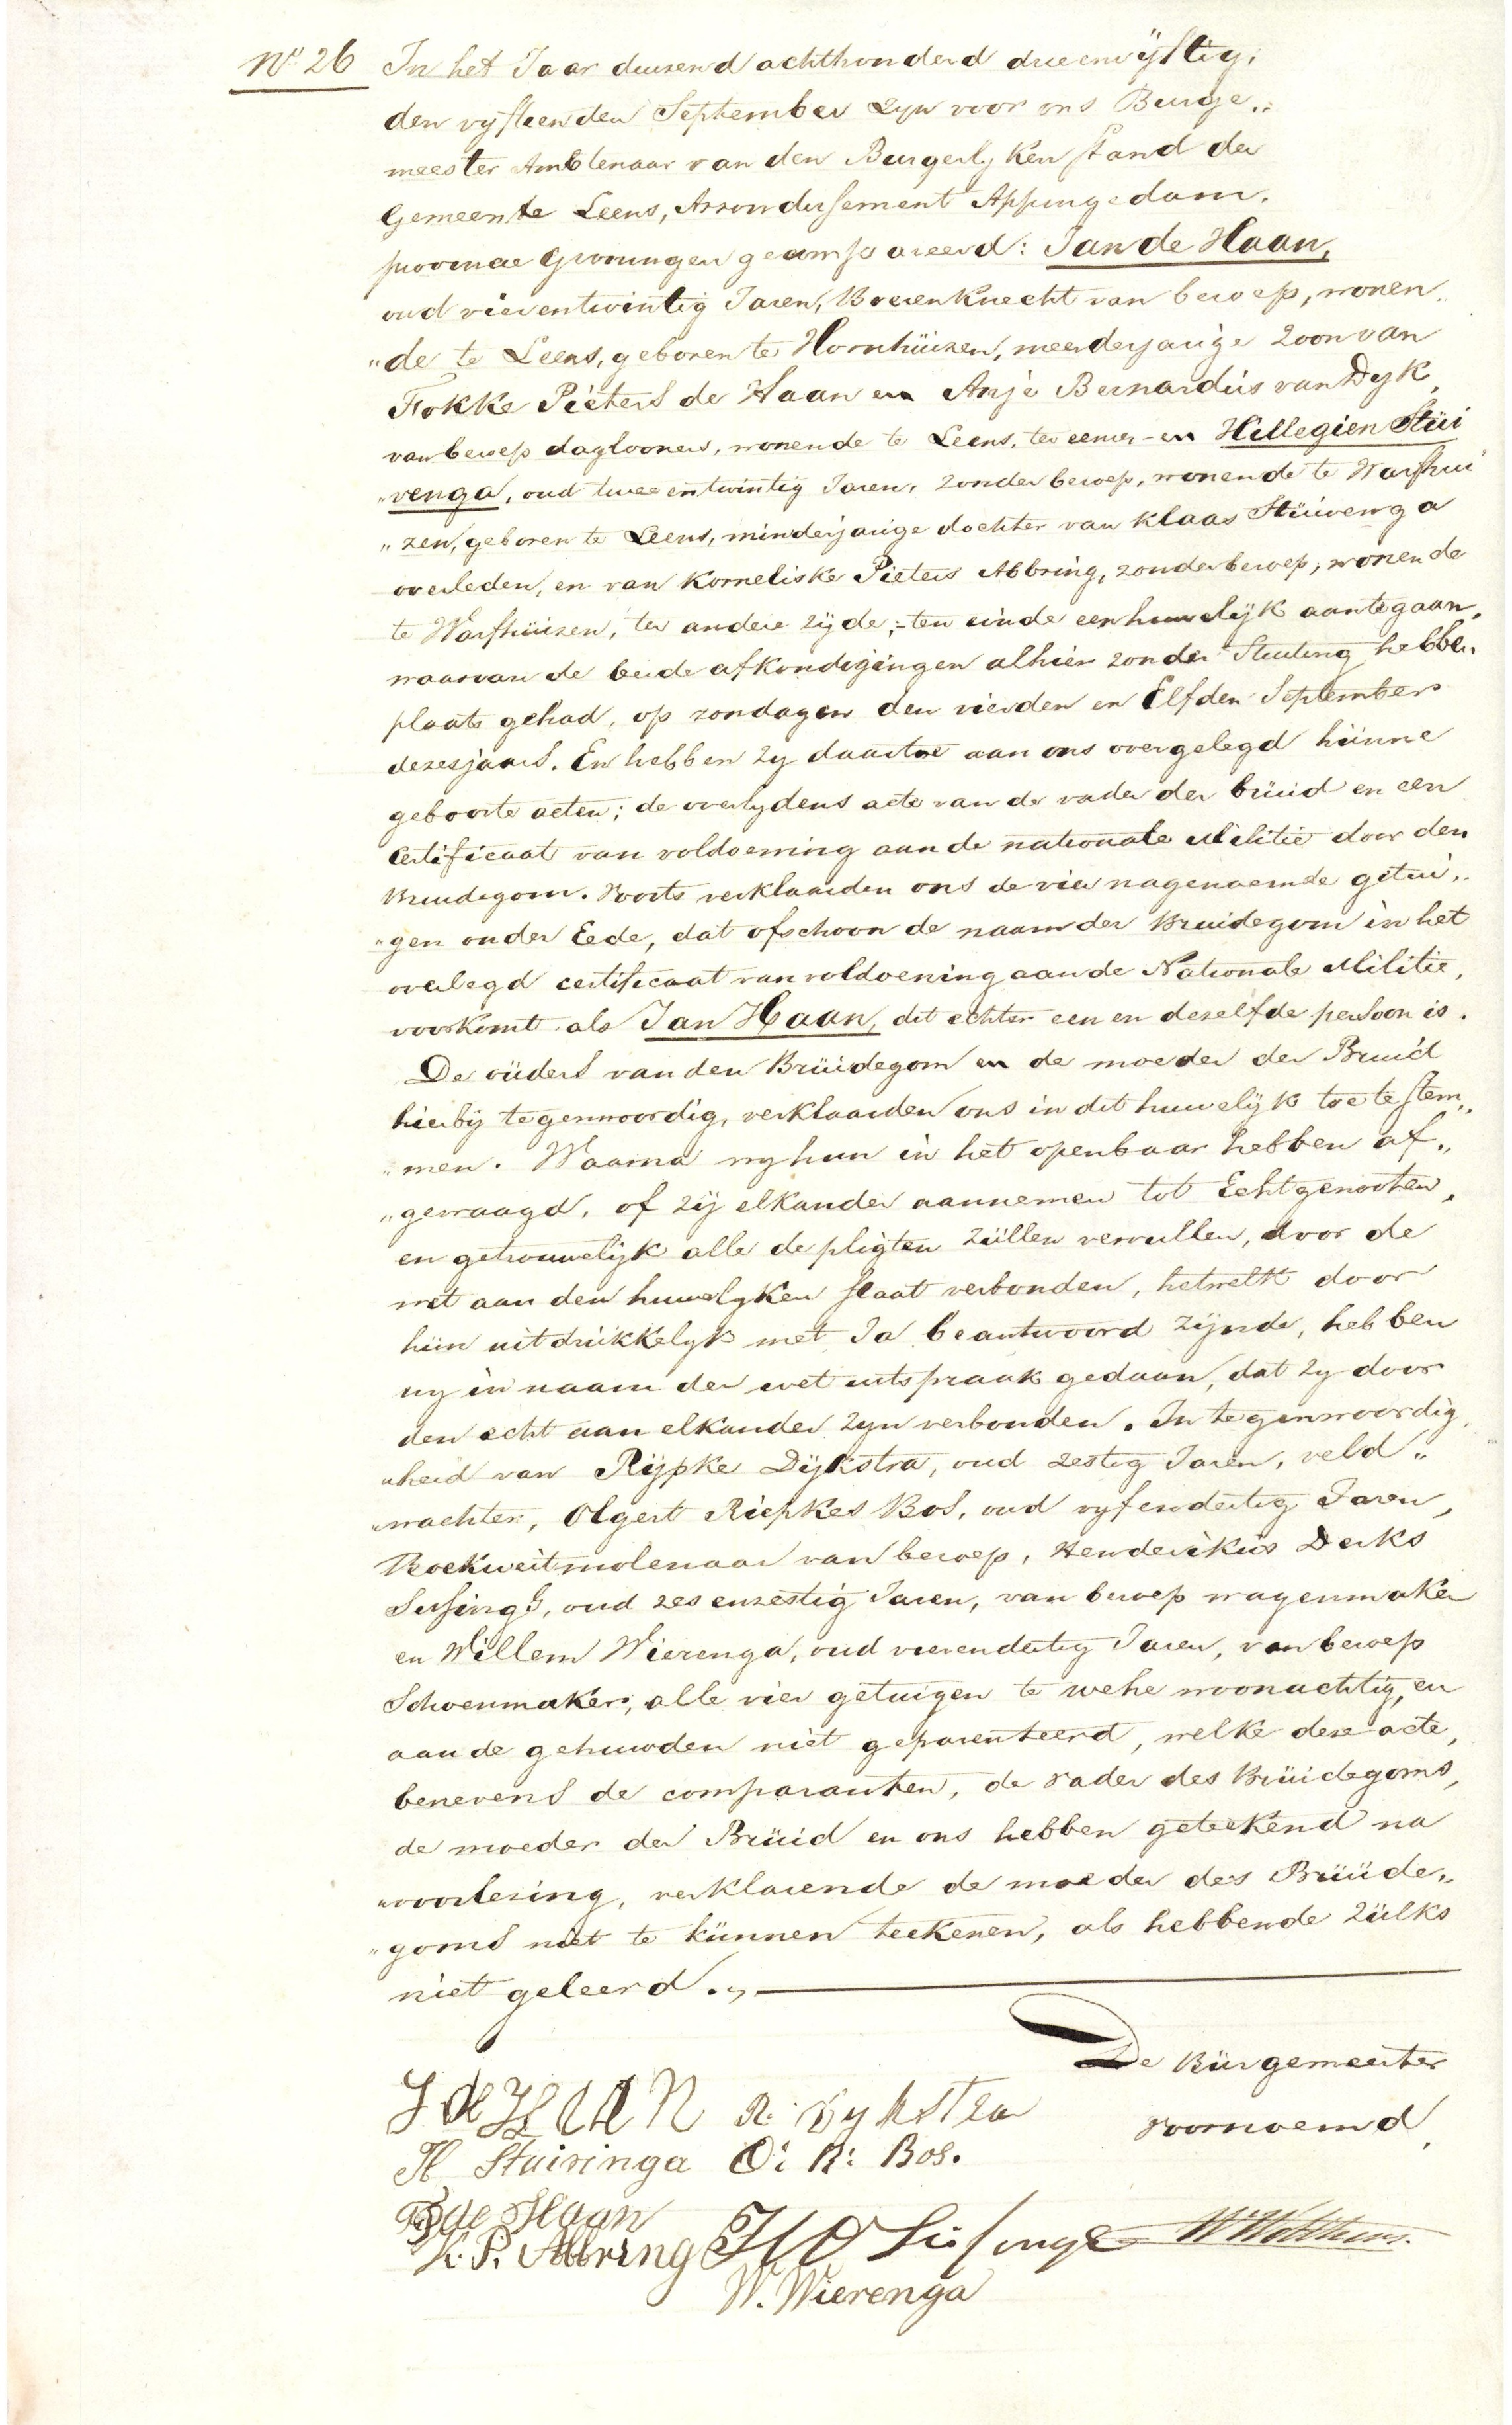 No 26 In het Jaar duizend achthonderd drieenvijftig,
den vyftienden September zyn voor ons Burge„
meester Ambtenaar van den Burgerlyken stand der
Gemeente Leens, Arrondissement Appingedam,
provincie Groningen gecompareerd: Jan de Haan,
oud vierentwintig Jaren, Boerenknecht van beroep, wonen„
„de te Leens, geboren te Hornhüizen, meerderjarige Zoon van
Fokke Pieters de Haan en Anje Bernardus van Dyk,
van beroep daglooners, wonende te Leens, ter eener - en Hillegien Stüi
„venga, oud twee entwintig Jaren, zonder beroep, wonende te Warfhui
„zen, geboren te Leens, minderjarige dochter van Klaas Stüivenga
overleden, en van Korneliske Pieters Abbring, zonder beroep, wonende
te Warfhüizen, ter andere zijde; - ten einde een huwelijk aantegaan,
waarvan de beide afkondigingen alhier zonder Stuiting hebben
plaats gehad, op zondagen den vierden en Elfden September
dezes jaars. En hebben zy daartoe aan ons overgelegd hünne
geboorte acten; de overlydens acte van de vader der brüid en een
Certificaat van voldoening aan de nationale Militie door den
Bruidegom. Voorts verklaarden ons de vier nagenoemde getui„
„gen onder Eede, dat ofschoon de naam der Bruidegom in het
overlegd certificaat van voldoening aan de Nationale Militie,
voorkomt als Jan Haan, dit echter een en dezelfde persoon is.
De oüders van den Brüidegom en de moeder der Bruid
hierbij tegenwoordig, verklaarden ons in dit huwelijk toe te stem„
„men. Waarna wy hun in het openbaar hebben af„
„gevraagd, of zij elkander aannemen tot Echtgenooten,
en getrouwelijk alle de pligten züllen vervullen, door de
wet aan den huwelyken staat verbonden, hetwelk door
hün uitdrükkelyk met Ja beantwoord zijnde, hebben
wy in naam der wet uitspraak gedaan, dat zy door
den echt aan elkander zyn verbonden. In tegenwoordig
„heid van Rijpke Dijkstra, oud zestig Jaren, veld„
„wachter, Olgert Riepkes Bos, oud vyfendertig Jaren,
Boekweitmolenaar van beroep, Henderikus Derks
Sifsingh, oud zes enzestig Jaren, van beroep wagenmaker
en Willem Wierenga, oud vierendertig Jaren, van beroep
Schoenmaker, alle vier getuigen te wehe woonachtig, en
aan de gehuwden niet geparenteerd, welke deze acte,
benevens de comparanten, de vader des Brüidegoms,
de moeder der Brüid en ons hebben geteekend na
„voorlezing, verklarende de moeder des Brüide„
„goms niet te künnen teekenen, als hebbende zülks
niet geleerd.„
De Bürgemeester
voornoemd,
J de HAAN R. Dykstra
H Stuivinga O: R: Bos.
F P de Haan
K. P. Abbring H D Sifsingh
W. Wierenga